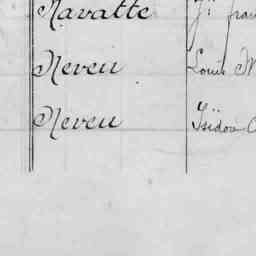 Navatte
Neveu Louis
Neveu Isidor